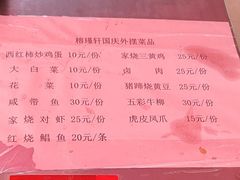 榕瑾轩国庆外摆菜品
西红柿炒鸡蛋 10元/份 家烧三黄鸡 25元/份
大白菜 10元/份 卤肉 25元/份
花菜 10元/份 猪蹄烧黄豆 25元/份
咸带鱼 30元/份 五彩牛柳 30元/份
家烧对虾 25元/份 虎皮凤爪 15元/份
红烧鲳鱼 20元/条